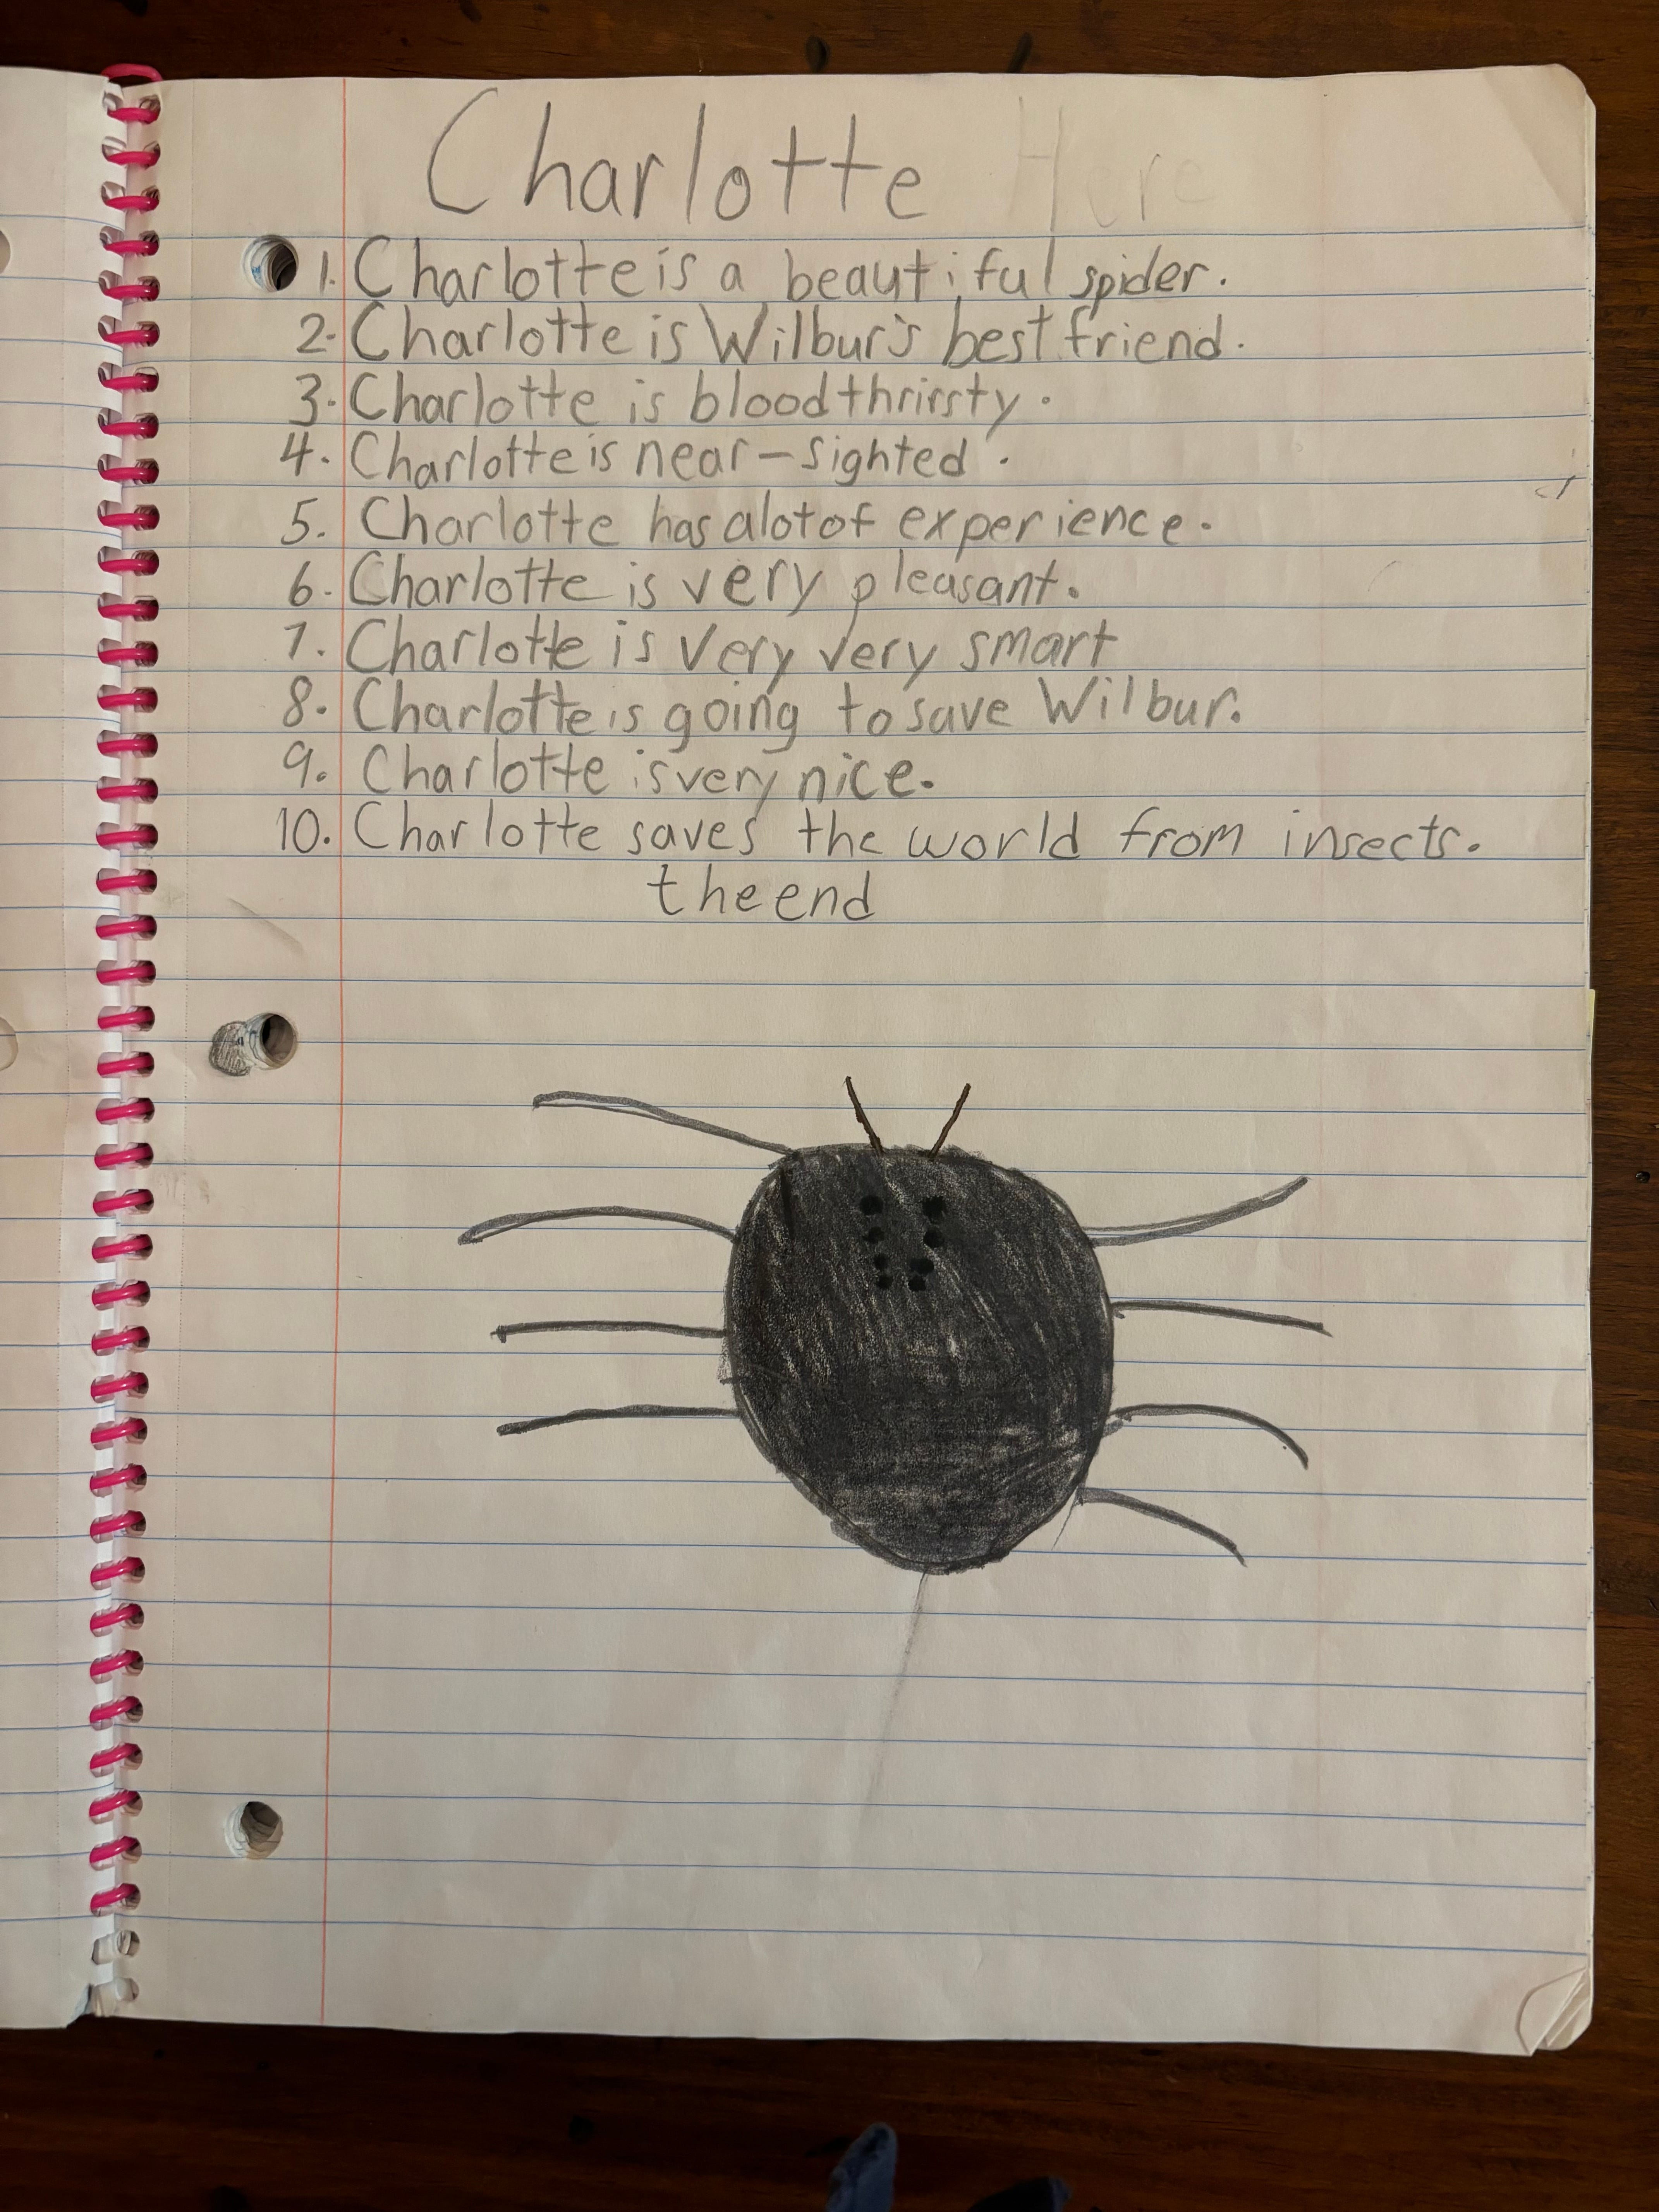 Charlotte
1. Charlotte is a beautiful spider.
2. Charlotte is Wilbur's best friend.
3. Charlotte is bloodthrirsty.
4. Charlotte is near-sighted.
5. Charlotte has alot of experience.
6. Charlotte is very pleasant.
7. Charlotte is very very smart
8. Charlotte is going to save Wilbur.
9. Charlotte is very nice.
10. Charlotte saves the world from insects.
the end